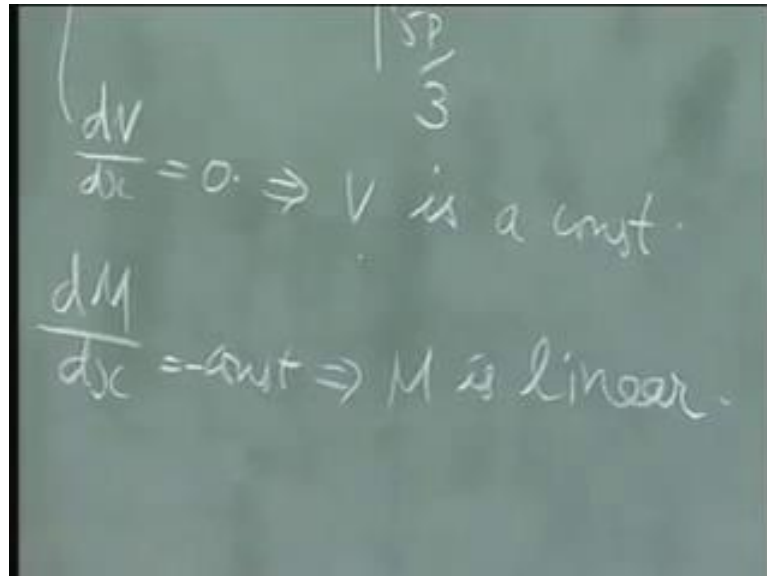 5P/3
dV/dx = 0. ⇒ V is a const.
dM/dx = -const ⇒ M is linear.